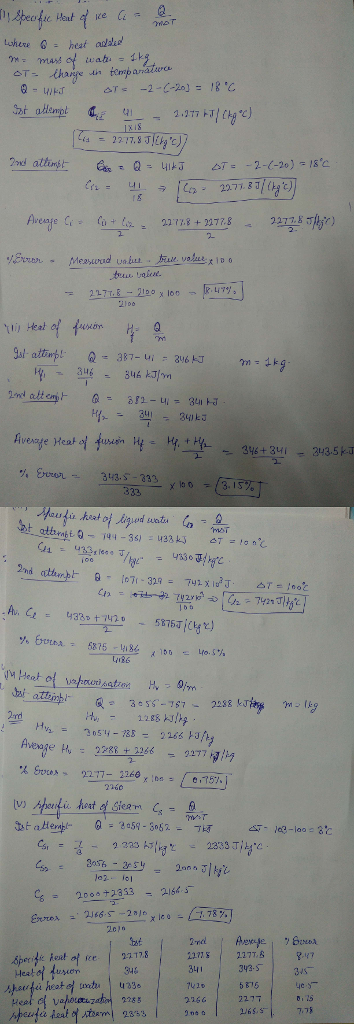 (i) Specific Heat of ice Ci = Q / mΔT
where Q = heat added
m = mass of water = 1kg
ΔT = change in temperature
Q = 41KJ ΔT = -2-(-20) = 18°C
1st attempt = 41 / 1x18 = 2.277 KJ/(kg°C)
Ci1 = 2277.8 J/(kg°C)
2nd attempt Q = 41KJ ΔT = -2-(-20) = 18°C
Ci2 = 41 / 18 ⇒ Ci2 = 2277.8 J/(kg°C)
Average Ci = Ci1 + Ci2 / 2 = 2277.8 + 2277.8 / 2 = 2277.8 J/(kg°C)
% Error = Measured value - true value x 100 / true value
= 2277.8 - 2100 / 2100 x 100 = 8.47%
(ii) Heat of fusion Hf = Q / m
1st attempt Q = 387 - 41 = 346 KJ m = 1kg.
Hf1 = 346 / 1 = 346 KJ/m
2nd attempt Q = 382 - 41 = 341 KJ
Hf2 = 341 / 1 = 341 KJ
Average Heat of fusion Hf = Hf1 + Hf2 / 2 = 346 + 341 / 2 = 343.5 KJ
% Error = 343.5 - 333 / 333 x 100 = 3.15%
Specific heat of liquid water = Q / mΔT
1st attempt Q = 794 - 361 = 433 KJ ΔT = 100°C
= 433x1000 / 100 J/kg°C = 4330 J/kg°C
2nd attempt Q = 1071 - 329 = 742 x 10³ J. ΔT = 100°C
= 742x10³ / 100 ⇒ = 7420 J/kg°C
Av. Cl = 4330 + 7420 / 2 = 5875 J/(kg°C)
% Error = 5875 - 4186 / 4186 x 100 = 40.5%
Heat of vapourisation Hv = Q/m
1st attempt Q = 3055 - 767 = 2288 KJ m = 1kg
Hv1 = 2288 KJ/kg
2nd Hv2 = 3054 - 788 = 2266 KJ/kg
Average Hv = 2288 + 2266 / 2 = 2277 KJ/kg
% Error = 2277 - 2260 / 2260 x 100 = 0.75%
(V) Specific heat of Steam Cs = Q / mΔT
1st attempt Q = 3059 - 3052 = 7KJ ΔT = 103 - 100 = 3°C
Cs1 = 7 / 3 = 2.333 KJ/kg°C = 2333 J/kg°C.
= 3056 - 3054 / 102 - 101 = 2000 J/kg°C
Cs = 2000 + 2333 / 2 = 2166.5
Error = 2166.5 - 2010 / 2010 x 100 = 7.78%
1st 2nd Average % Error
Specific heat of ice 2277.8 2277.8 2277.8 8.47
Heat of fusion 346 341 343.5 3.15
specific heat of water 4330 7420 5875 40.5
Heat of vapourization 2288 2266 2277 0.75
specific heat of steam 2333 2000 2166.5 7.78